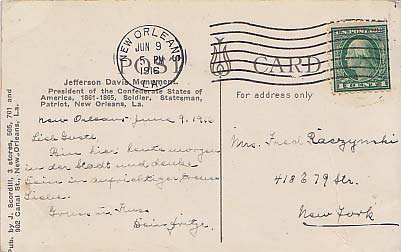 NEW ORLEANS
JUN 9
5 PM
1916
LA.
POST CARD
U.S. POSTAGE
1 CENT 1
Jefferson Davis Monument.
President of the Confederate States of
America, 1861-1865, Soldier, Statesman,
Patriot, New Orleans, La.
For address only
Pub. by J. Scordill, 3 stores, 505, 701 and
902 Canal St., New Orleans, La.
New Orleans June 9. 1916
Lieb Guste
Bin hier heute morgen
in der Stadt und denke
Dein in aufrichtiger treue
Liebe.
Gruss u. Kuss
Dein Fritz.
Mrs. Fred Raczynski
418 E 79 Str.
New York